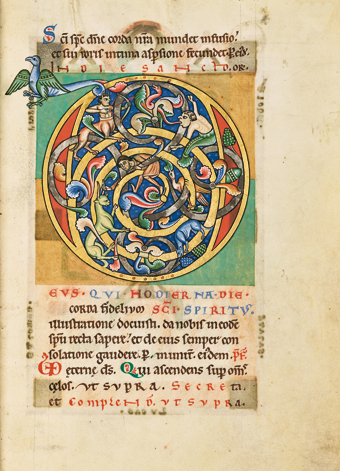 Sc̄i sp̄c dn̄e corda nr̄a mundet infusio;
et sui roris intima aspsione fecundet. P. eid.
IN DIE SANCTO. OR.
D
EVS. QVI HODIERNA DIE
corda fideliuo SC̄I SPIRITV
illustratione docuisti. da nobis in eodē
spū recta sapere. et de eius semper con
solatione gaudere. P.
ęterne ds̄. Qui ascendens sup om̄s
cęlos. VT SVPRA. SECRETA.
ET COMPLEND. VT SVPRA.